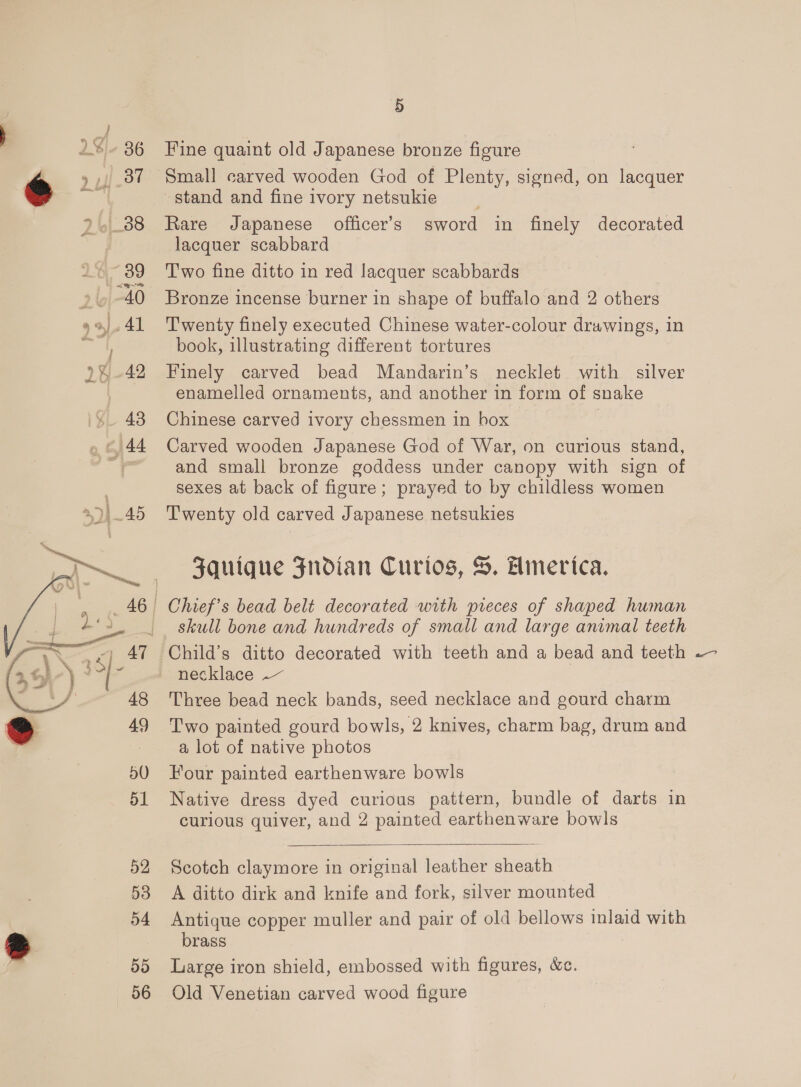 5
36 Fine quaint old Japanese bronze figure
37 Small carved wooden God of Plenty, signed, on lacquer
stand and fine ivory netsukie
38 Rare Japanese officer's sword in finely decorated
lacquer scabbard
39 Two fine ditto in red lacquer scabbards
40 Bronze incense burner in shape of buffalo and 2 others
41 Twenty finely executed Chinese water-colour drawings, in
book, illustrating different tortures
42 Finely carved bead Mandarin's necklet with silver
enamelled ornaments, and another in form of snake
43 Chinese carved ivory chessmen in box
44 Carved wooden Japanese God of War, on curious stand,
and small bronze goddess under canopy with sign of
sexes at back of figure; prayed to by childless women
45 Twenty old carved Japanese netsukies
Iquique Indian Curios, S. America.
46 Chief's bead belt decorated with pieces of shaped human
skull bone and hundreds of small and large animal teeth
47 Child's ditto decorated with teeth and a bead and teeth
necklace
48 Three bead neck bands, seed necklace and gourd charm
49 Two painted gourd bowls, 2 knives, charm bag, drum and
a lot of native photos
50 Four painted earthenware bowls
51 Native dress dyed curious pattern, bundle of darts in
curious quiver, and 2 painted earthenware bowls
52 Scotch claymore in original leather sheath
53 A ditto dirk and knife and fork, silver mounted
54 Antique copper muller and pair of old bellows inlaid with
brass
55 Large iron shield, embossed with figures, &c.
56 Old Venetian carved wood figure